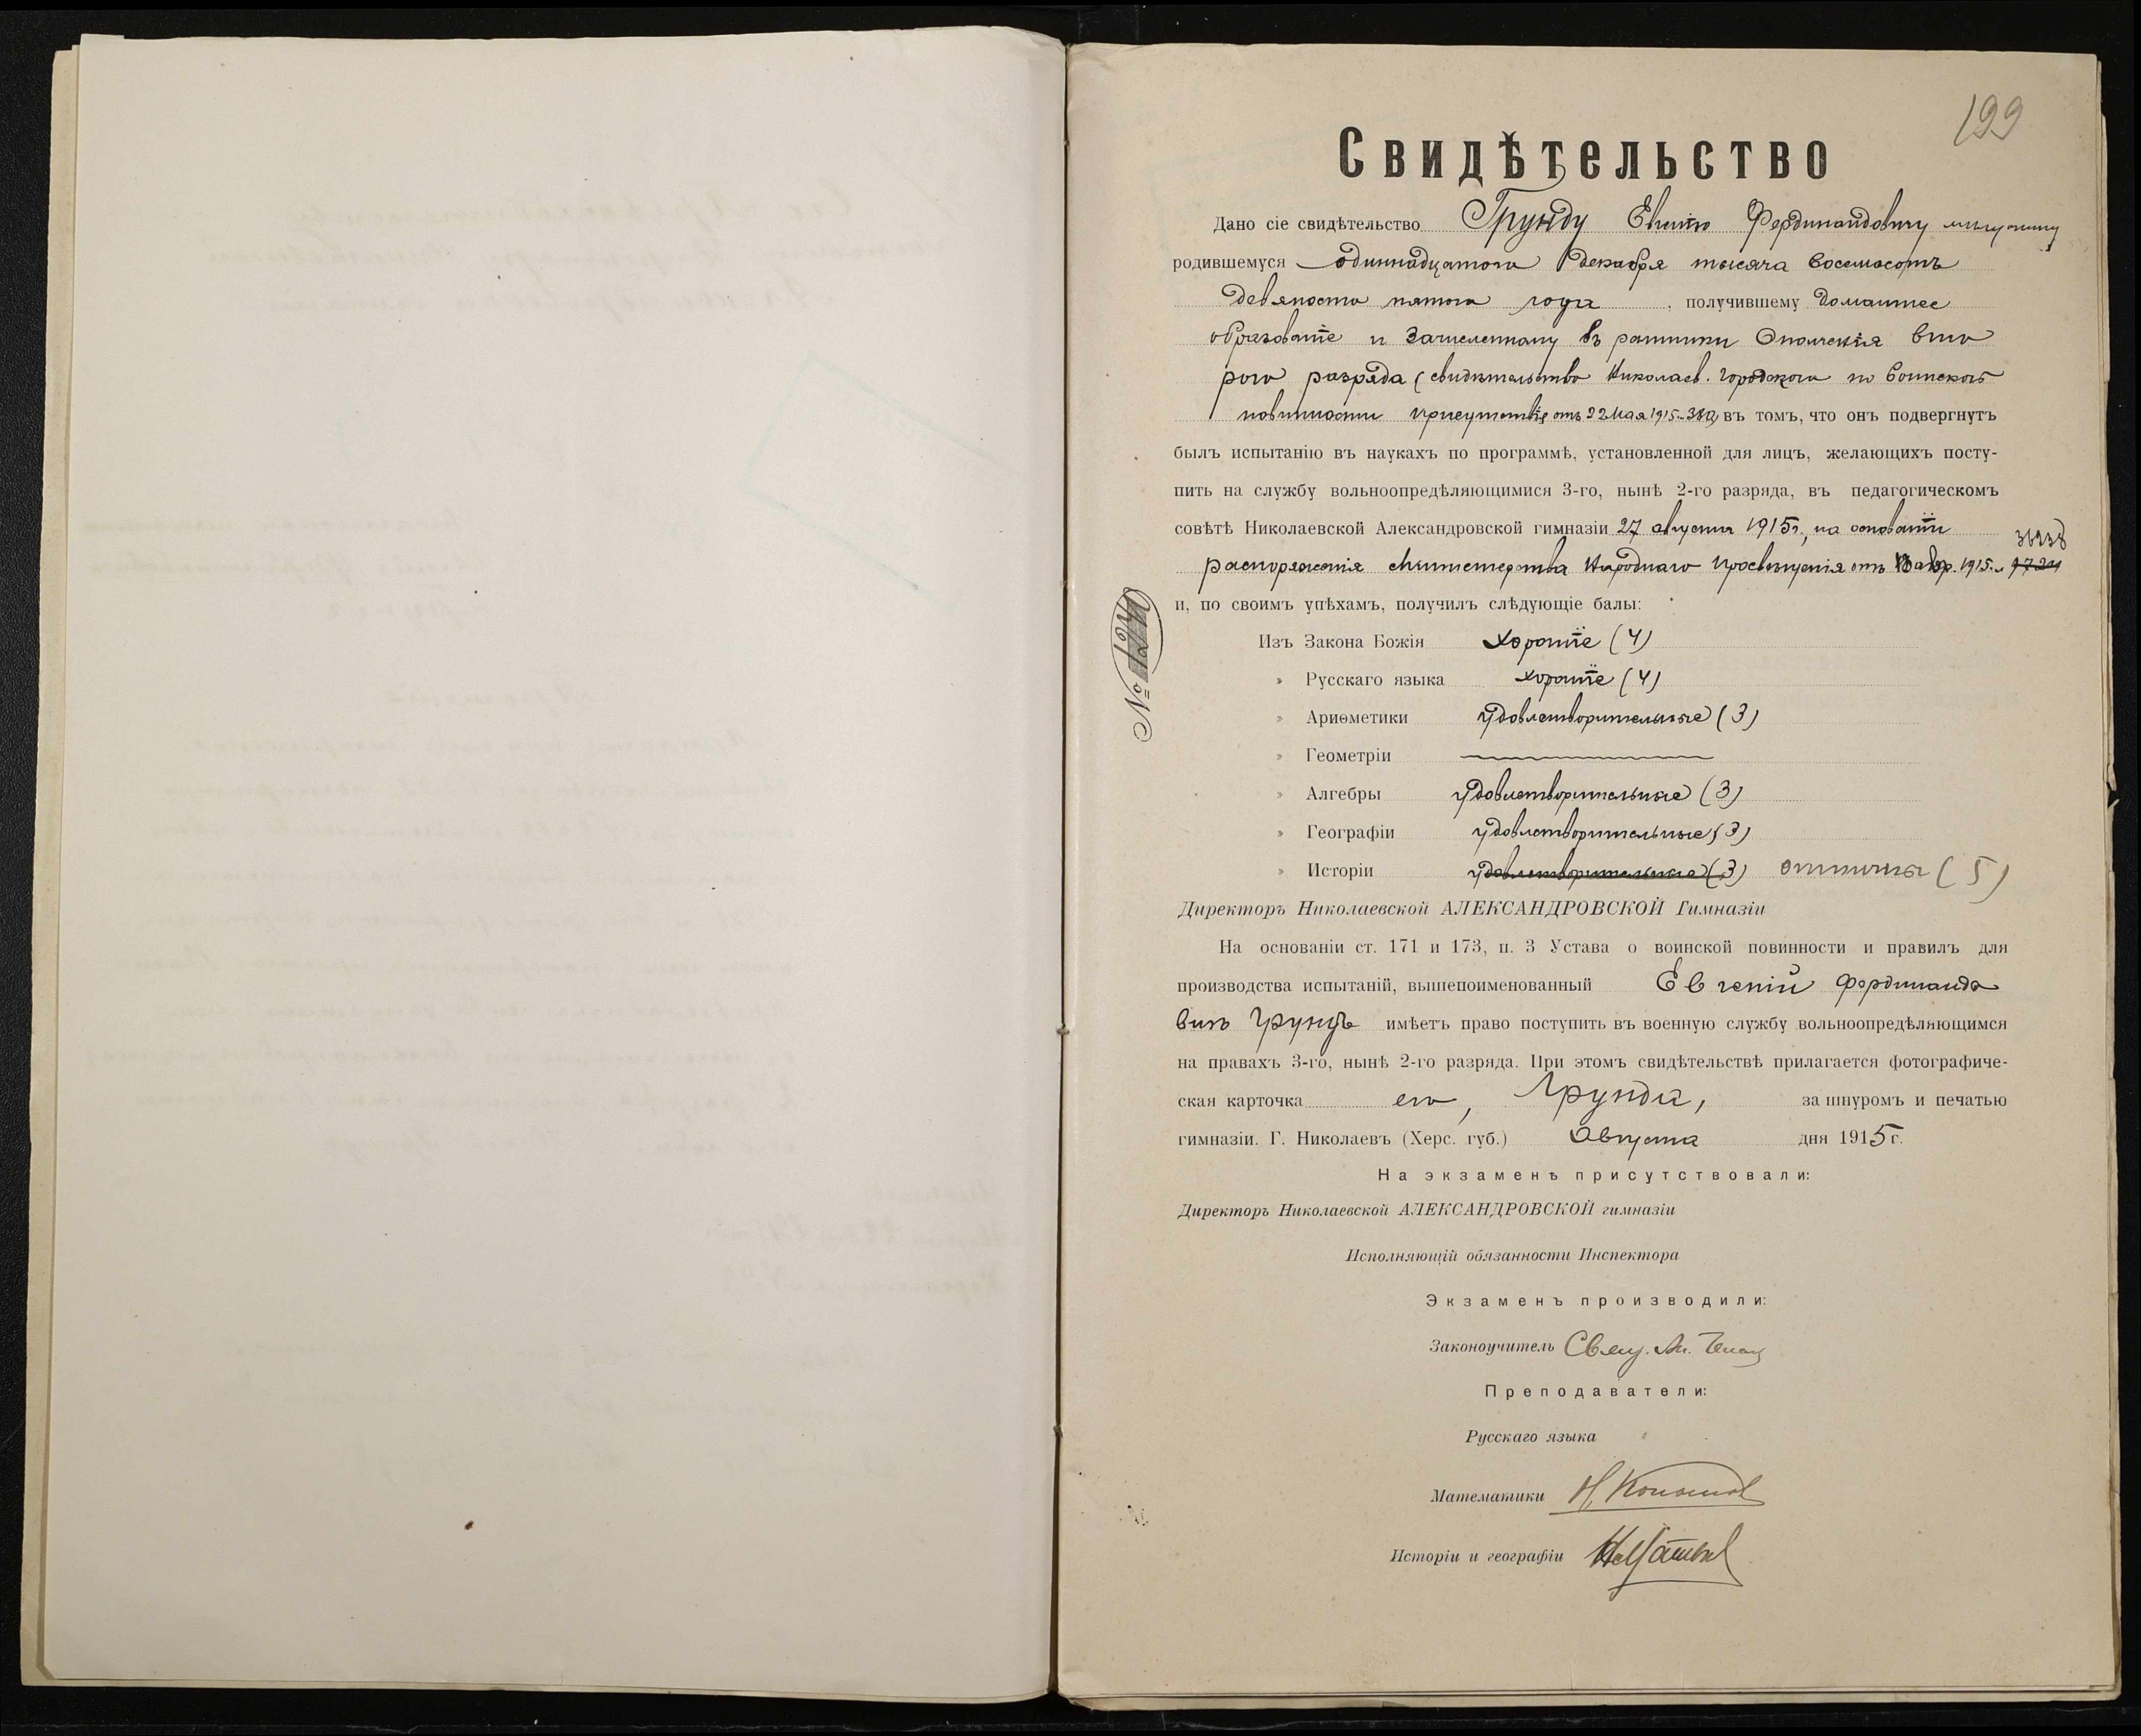 199
Свидѣтельство
Дано сіе свидѣтельство Грунду Евгенію Фердинандовичу мѣщанину
родившемуся одиннадцатого Декабря тысяча восемьсотъ
девяносто пятого года, получившему домашнее
образованіе и зачисленному въ ратники Ополченія вто
рого разряда (свидѣтельство Николаев. городского по воинской
повинности присутствія отъ 22 Мая 1915 въ томъ, что онъ подвергнутъ
былъ испытанію въ наукахъ по программѣ, установленной для лицъ, желающихъ посту-
пить на службу вольноопредѣляющимися 3-го, нынѣ 2-го разряда, въ педагогическомъ
совѣтѣ Николаевской Александровской гимназіи 27 августа 1915г., на основаніи
распоряженія Министерства Народнаго Просвѣщенія отъ 1915.
и, по своимъ упѣхамъ, получилъ слѣдующіе балы:
№ 1240
Изъ Закона Божія хорошіе (4)
» Русскаго языка хорошіе (4)
» Ариѳметики удовлетворительные (3)
» Геометріи
» Алгебры удовлетворительные (3)
» Географіи удовлетворительные (3)
» Исторіи удовлетворительные (3) отличные (5)
Директоръ Николаевской АЛЕКСАНДРОВСКОЙ Гимназіи
На основаніи ст. 171 и 173, п. 3 Устава о воинской повинности и правилъ для
производства испытаній, вышепоименованный Евгеній Фердинандо
вичъ Грундъ имѣетъ право поступить въ военную службу вольноопредѣляющимся
на правахъ 3-го, нынѣ 2-го разряда. При этомъ свидѣтельствѣ прилагается фотографиче-
ская карточка его, Грунда, за шнуромъ и печатью
гимназіи. Г. Николаевъ (Херс. губ.) Августа дня 1915 г.
На экзаменѣ присутствовали:
Директоръ Николаевской АЛЕКСАНДРОВСКОЙ гимназіи
Исполняющій обязанности Инспектора
Экзаменъ производили:
Законоучитель Свящ.
Преподаватели:
Русскаго языка
Математики
Исторіи и географіи